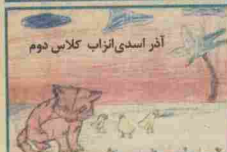 آذر اسدی‌انزاب کلاس دوم